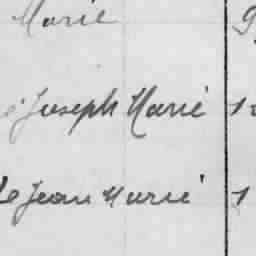 Marie
Joseph Marie 1
Le Jean Marie 1